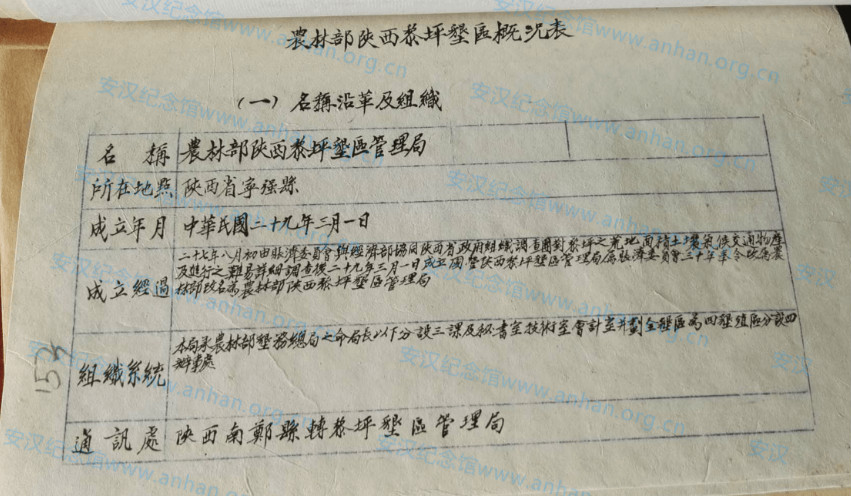 農林部陝西黎坪墾區概況表
(一) 名稱沿革及組織
名稱 農林部陝西黎坪墾區管理局
所在地點 陝西省寧强縣
成立年月 中華民國二十九年三月一日
成立經過 二十七年八月初由賑濟委員會與經濟部協同陝西省政府組織調查團對黎坪之荒地面積土壤氣候交通物產
及進行之難易詳細調查後二十九年三月一日成立國營陝西黎坪墾區管理局屬賑濟委員會三十年奉令改屬農
林部改名為農林部陝西黎坪墾區管理局
組織系統 本局承農林部墾務總局之命局長以下分設三課及秘書室技術室會計室并劃全墾區為四墾殖區分設四
辦事處
通訊處 陝西南鄭縣轉黎坪墾區管理局
153
安汉纪念馆www.anhan.org.cn